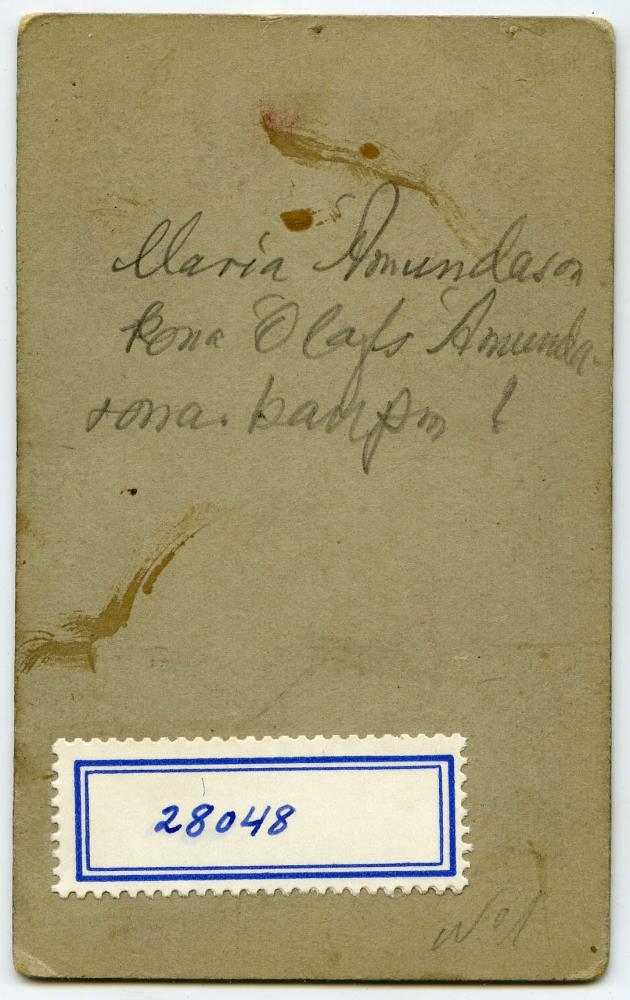 Maria Ámundason
Kona Ólafs Ámunda-
sona. kaupm !
28048
No 1